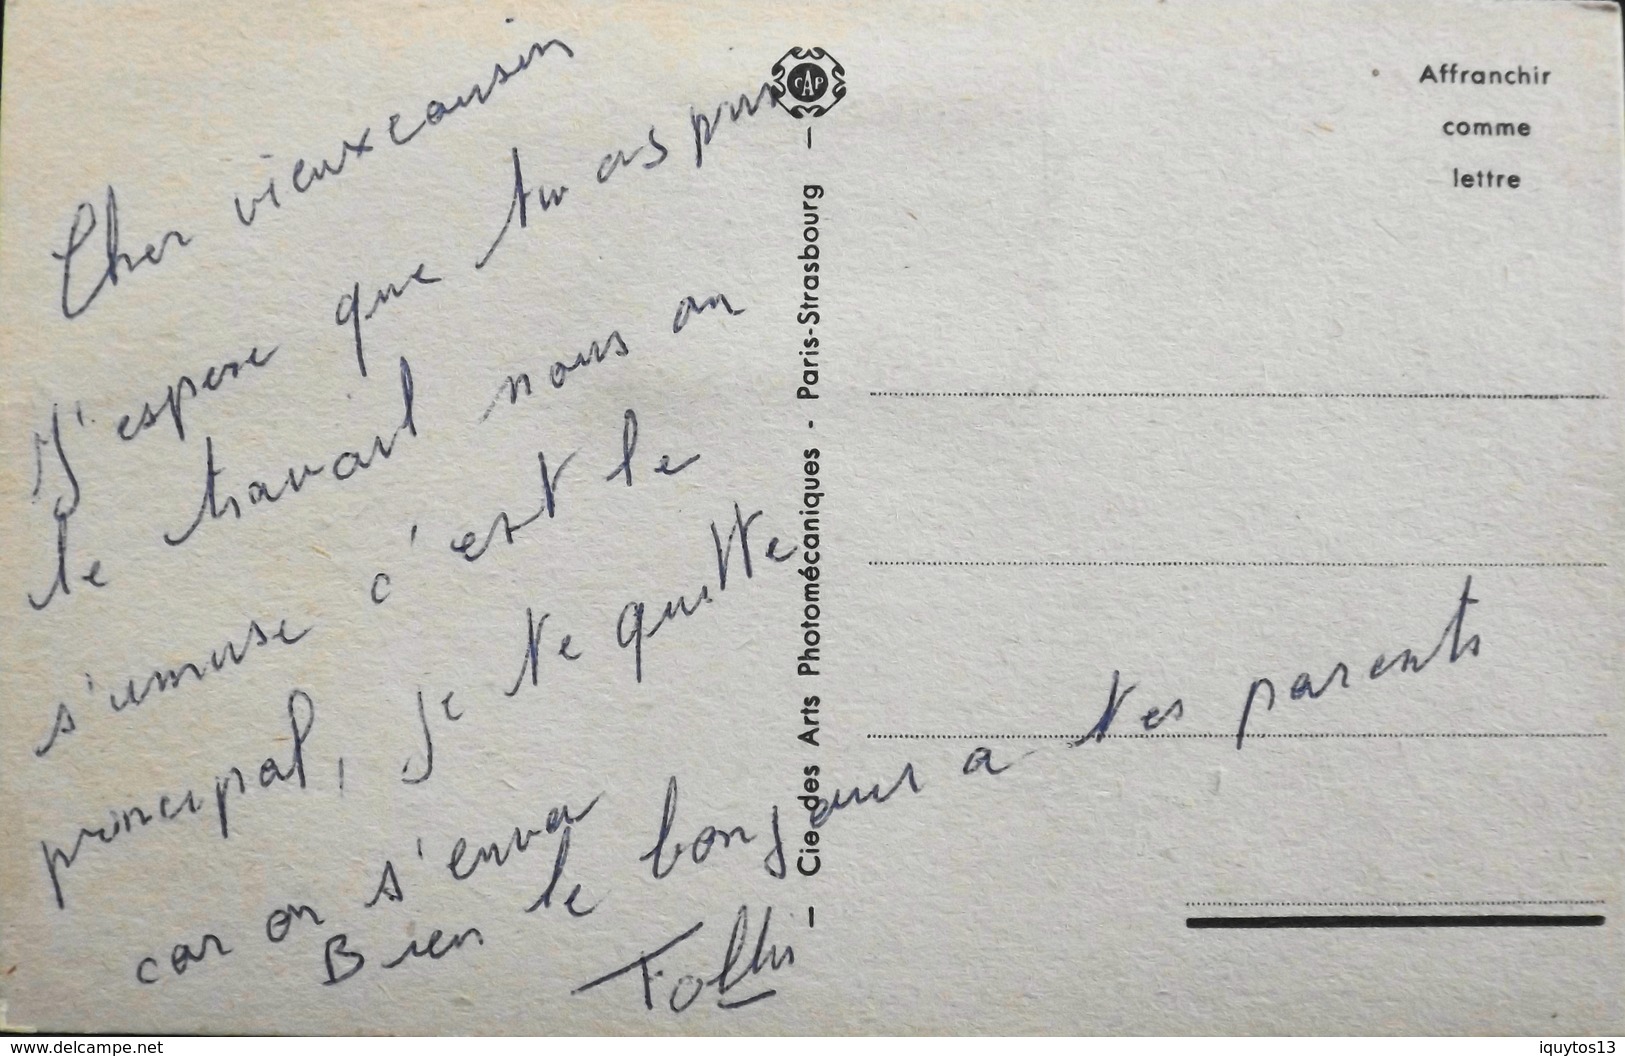 Cher vieux cousin
J'espere que tu as pris
le travail nous on
s'amuse c'est le
principal, je te quitte
car on s'en va
Bien le bonjour a tes parents
CAP
Cie des Arts Photomécaniques - Paris-Strasbourg
Affranchir
comme
lettre
www.delcampe.net
iquytos13